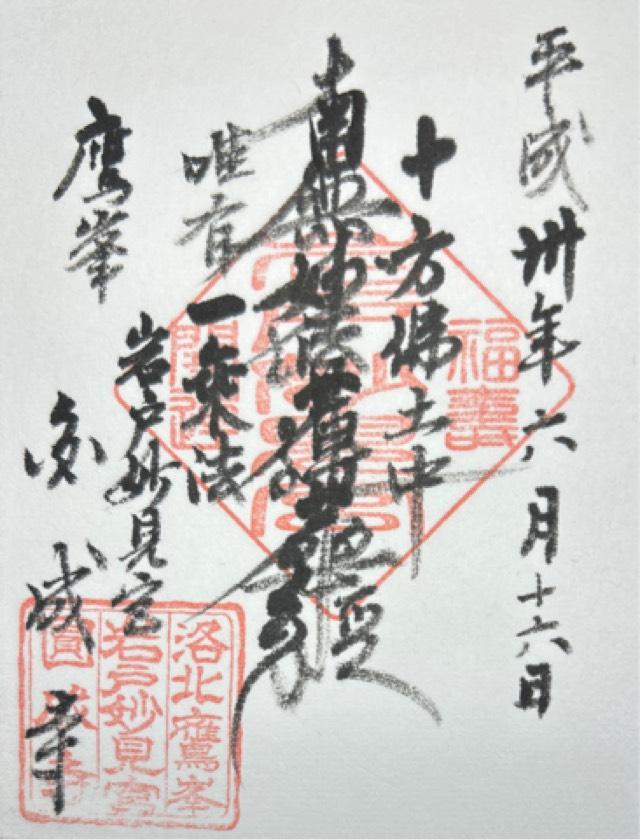 平成卅年六月十六日
十方佛土中
南無妙法蓮華經
唯有一乗法
鷹峯
岩戸妙見宮
圓成寺
福壽
開運
洛北鷹峯
岩戸妙見宮
圓成寺